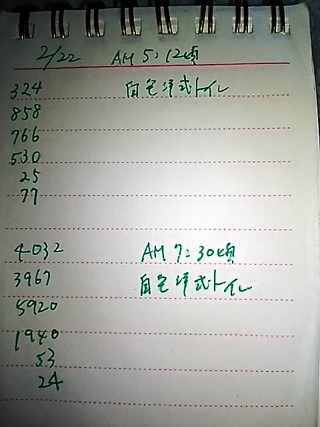 2/22 AM 5:12頃
324 白色洋式トイレ
858
766
530
25
77
4032 AM 7:30頃
3967 白色洋式トイレ
5920
1940
53
24